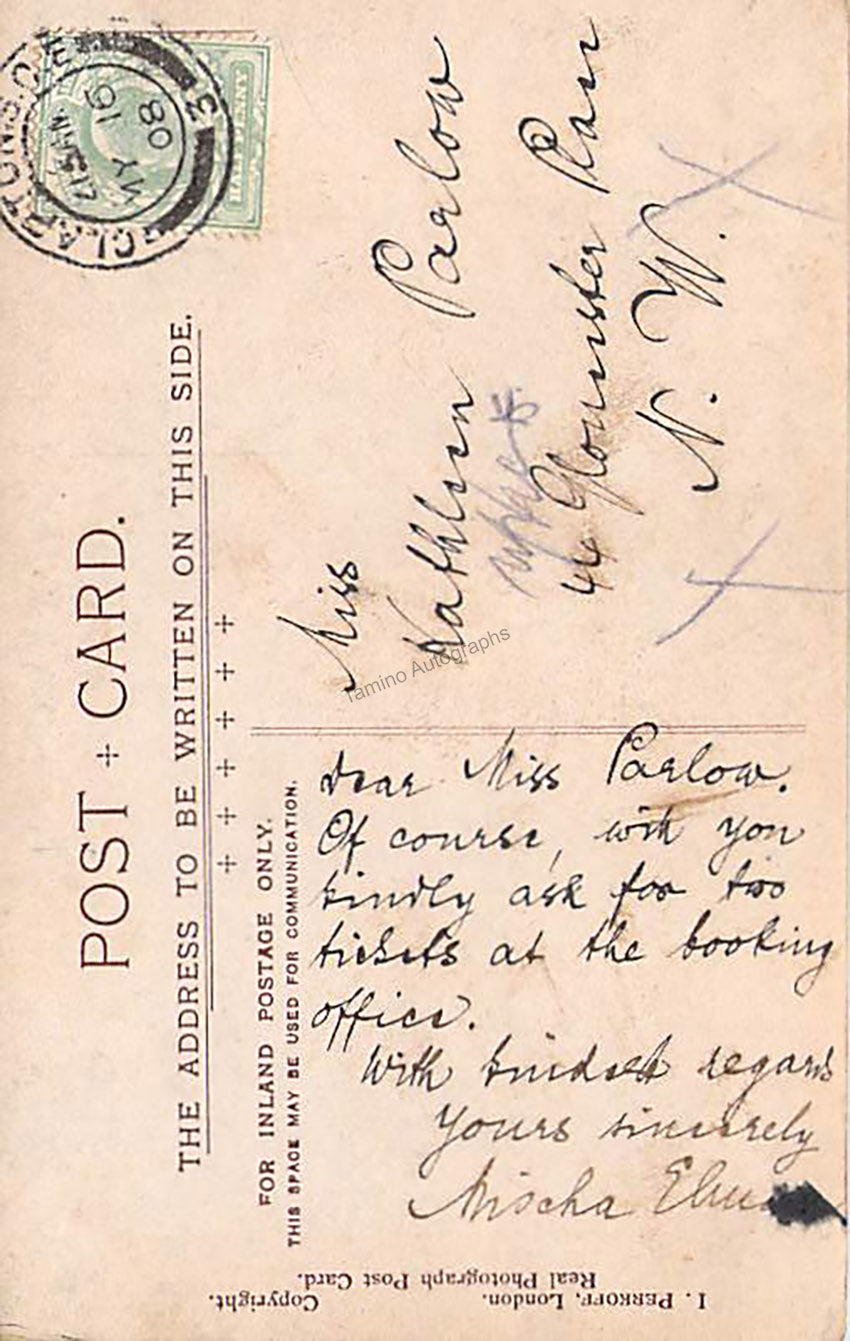 POST CARD.
THE ADDRESS TO BE WRITTEN ON THIS SIDE.
FOR INLAND POSTAGE ONLY.
THIS SPACE MAY BE USED FOR COMMUNICATION.
HALFPENNY
CLAPTON S.O.
12 15 AM
MY 15
08
3
Miss
Kathleen Parlow
44 Gloucester Place
N. W.
Dear Miss Parlow.
Of course, will you
kindly ask for two
tickets at the booking
office.
With kindest regards
Yours sincerely
Mischa
I. PERKOFF, London.
Real Photograph Post Card.
Copyright.
Tamino Autographs